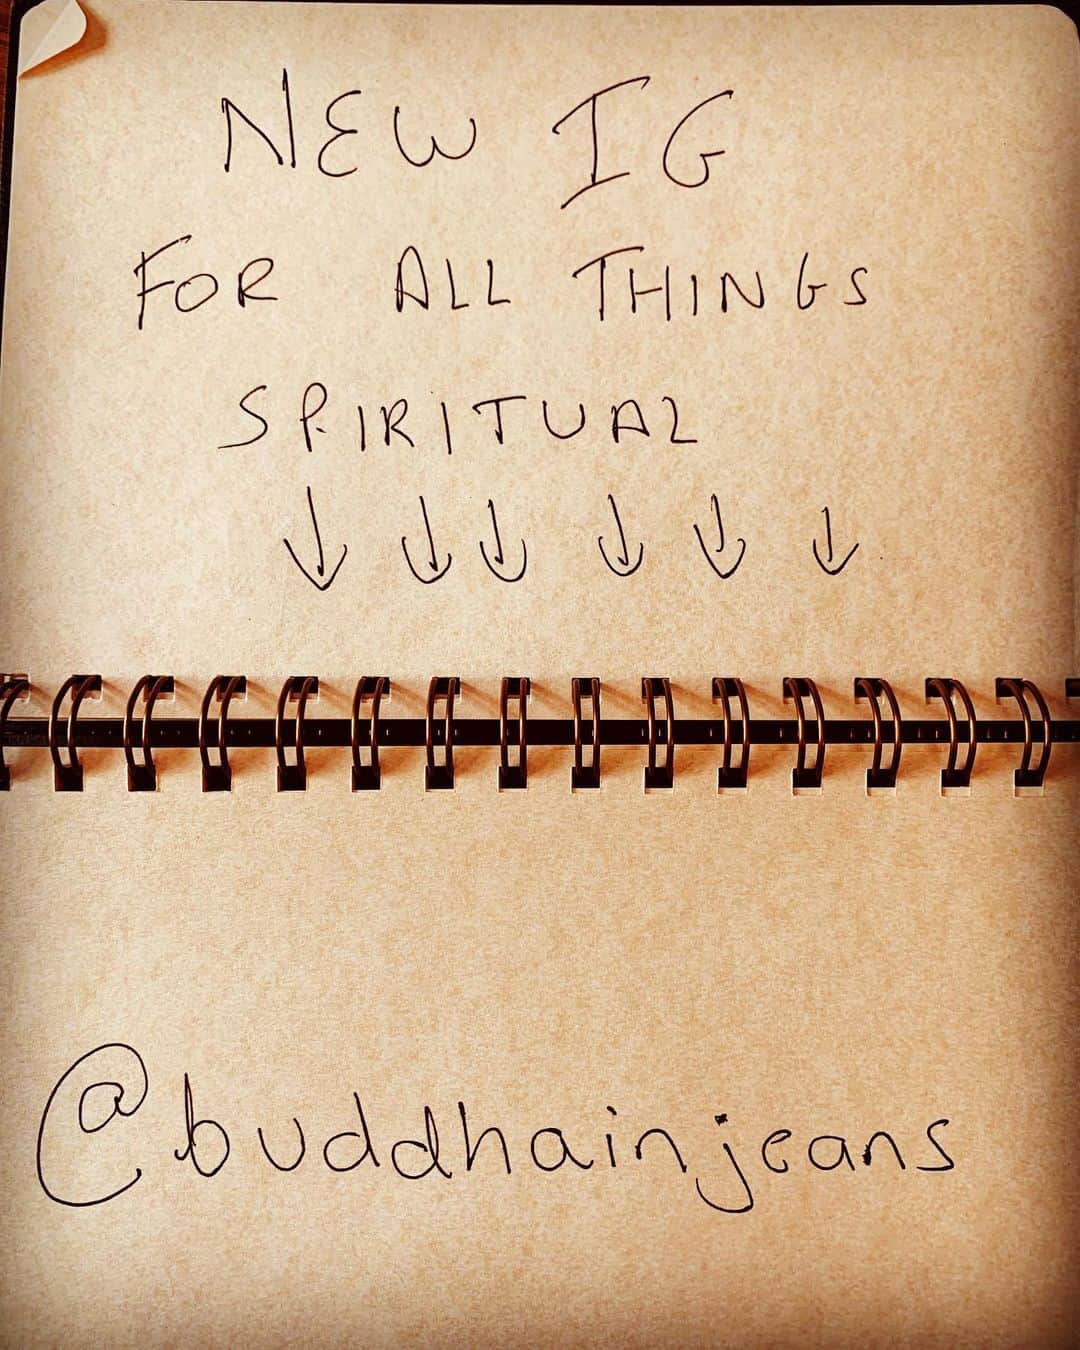 NEW IG
FOR ALL THINGS
SPIRITUAL
↓ ↓ ↓ ↓ ↓ ↓
@buddhainjeans